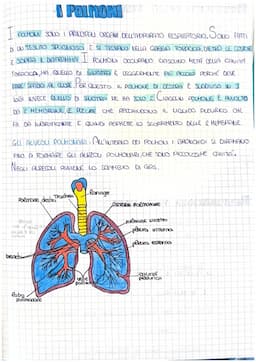 I POLMONI
I POLMONI SONO I PRINCIPALI ORGANI DELL'APPARATO RESPIRATORIO. SONO FATTI
DI UN TESSUTO SPUGNOSO E SI TROVANO NELLA GABBIA TORACICA DIETRO LE COSTE
E SOPRA IL DIAFRAMMA. I POLMONI OCCUPANO CIASCUNO METÀ DELLA CAVITÀ
TORACICA, MA QUELLO DI SINISTRA È LEGGERMENTE PIÙ PICCOLO PERCHÉ DEVE
FARE SPAZIO AL CUORE. PER QUESTO IL POLMONE DI DESTRA È SUDDIVISO IN 3
LOBI INVECE QUELLO DI SINISTRA NE HA SOLO 2. CIASCUN POLMONE È AVVOLTO
DA 2 MEMBRANE, LE PLEURE CHE RACCHIUDONO IL LIQUIDO PLEURICO CHE
FA DA LUBRIFICANTE E QUINDI PERMETTE LO SCORRIMENTO DELLE 2 MEMBRANE.
GLI ALVEOLI POLMONARI: ALL'INTERNO DEI POLMONI I BRONCHI SI DIRAMANO
FINO A FORMARE GLI ALVEOLI POLMONARI, CHE SONO PICCOLISSIME CAVITÀ.
NEGLI ALVEOLI AVVIENE LO SCAMBIO DI GAS.
laringe
trachea
polmone destro
arteria polmonare
pleura interna
pleura esterna
bronchi
vene polmonari
alveoli polmonari
lobo polmonare